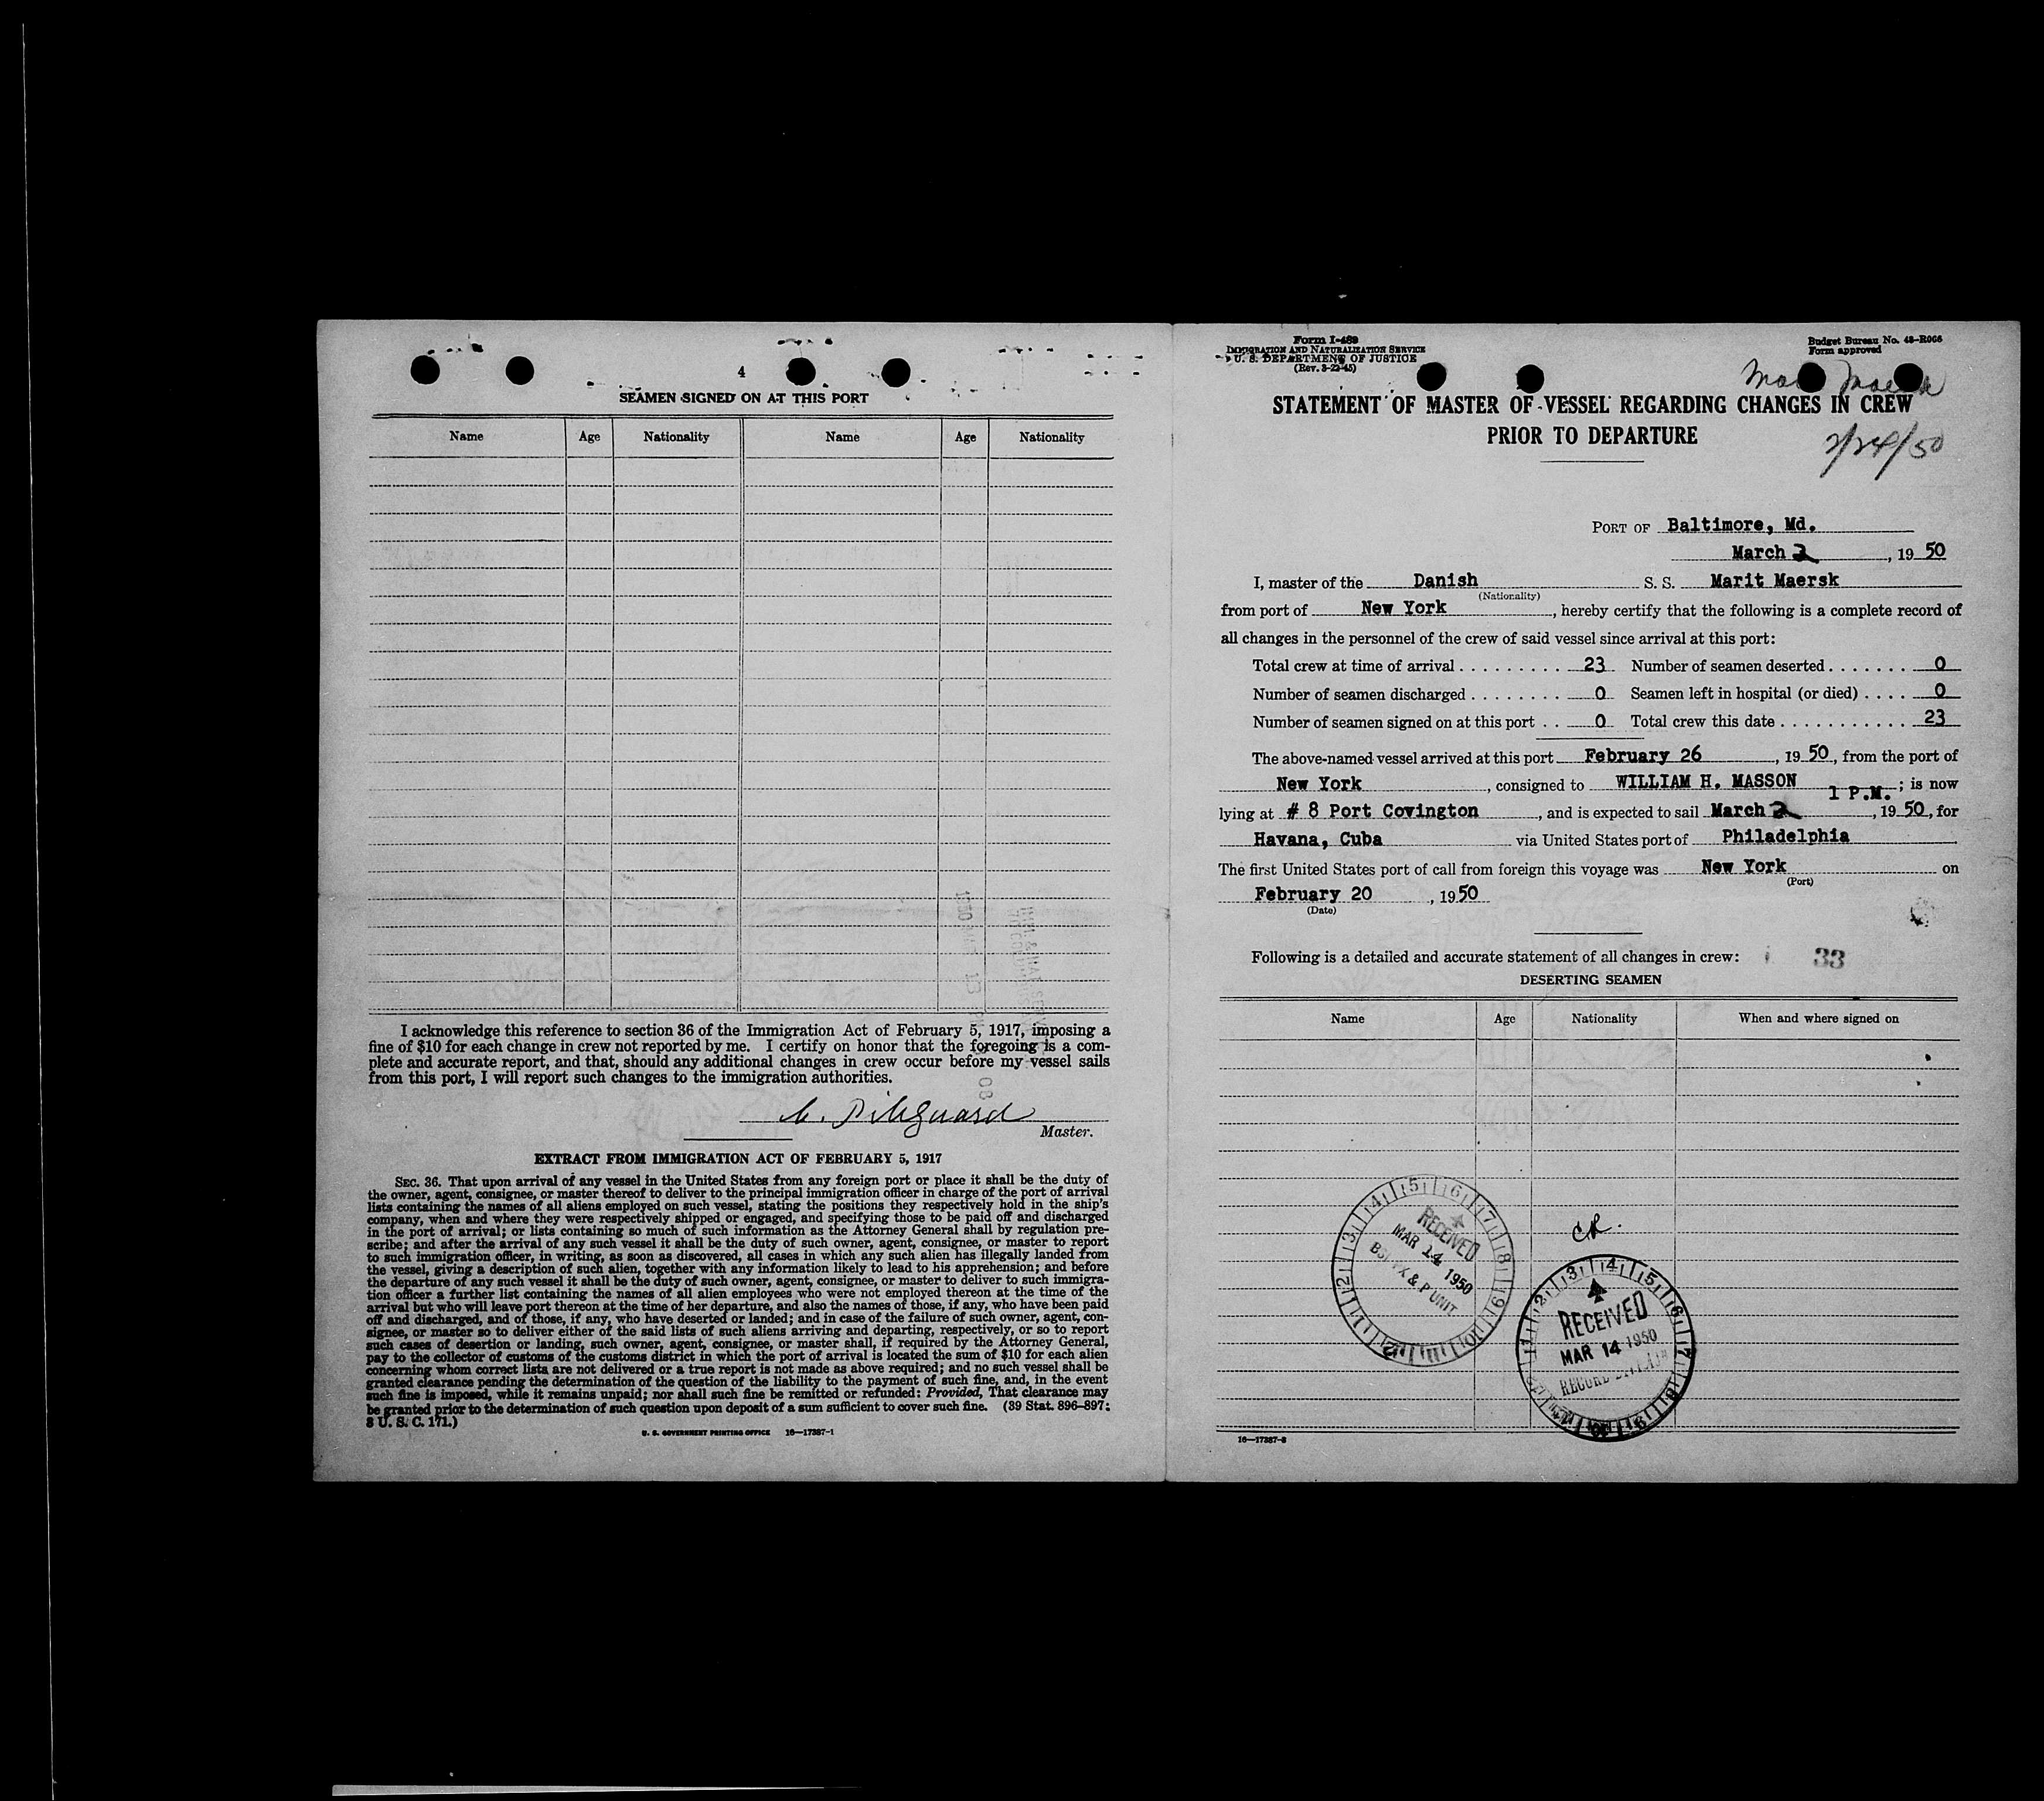 4
SEAMEN SIGNED ON AT THIS PORT
Name Age Nationality Name Age Nationality
I acknowledge this reference to section 36 of the Immigration Act of February 5, 1917, imposing a
fine of $10 for each change in crew not reported by me. I certify on honor that the foregoing is a com-
plete and accurate report, and that, should any additional changes in crew occur before my vessel sails
from this port, I will report such changes to the immigration authorities.
Master.
EXTRACT FROM IMMIGRATION ACT OF FEBRUARY 5, 1917
SEC. 36. That upon arrival of any vessel in the United States from any foreign port or place it shall be the duty of
the owner, agent, consignee, or master thereof to deliver to the principal immigration officer in charge of the port of arrival
lists containing the names of all aliens employed on such vessel, stating the positions they respectively hold in the ship's
company, when and where they were respectively shipped or engaged, and specifying those to be paid off and discharged
in the port of arrival; or lists containing so much of such information as the Attorney General shall by regulation pre-
scribe; and after the arrival of any such vessel it shall be the duty of such owner, agent, consignee, or master to report
to such immigration officer, in writing, as soon as discovered, all cases in which any such alien has illegally landed from
the vessel, giving a description of such alien, together with any information likely to lead to his apprehension; and before
the departure of any such vessel it shall be the duty of such owner, agent, consignee, or master to deliver to such immigra-
tion officer a further list containing the names of all alien employees who were not employed thereon at the time of the
arrival but who will leave port thereon at the time of her departure, and also the names of those, if any, who have been paid
off and discharged, and of those, if any, who have deserted or landed; and in case of the failure of such owner, agent, con-
signee, or master so to deliver either of the said lists of such aliens arriving and departing, respectively, or so to report
such cases of desertion or landing, such owner, agent, consignee, or master shall, if required by the Attorney General,
pay to the collector of customs of the customs district in which the port of arrival is located the sum of $10 for each alien
concerning whom correct lists are not delivered or a true report is not made as above required; and no such vessel shall be
granted clearance pending the determination of the question of the liability to the payment of such fine, and, in the event
such fine is imposed, while it remains unpaid; nor shall such fine be remitted or refunded: Provided, That clearance may
be granted prior to the determination of such question upon deposit of a sum sufficient to cover such fine. (39 Stat. 896-897;
8 U. S. C. 171.)
U. S. GOVERNMENT PRINTING OFFICE 16—17387-1
Form I-489
IMMIGRATION AND NATURALIZATION SERVICE
U. S. DEPARTMENT OF JUSTICE
(Rev. 3-22-45)
Budget Bureau No. 43-R066
Form approved
STATEMENT OF MASTER OF VESSEL REGARDING CHANGES IN CREW
PRIOR TO DEPARTURE
2/24/50
PORT OF Baltimore, Md.
March 2, 1950
I, master of the Danish S. S. Marit Maersk
(Nationality)
from port of New York, hereby certify that the following is a complete record of
all changes in the personnel of the crew of said vessel since arrival at this port:
Total crew at time of arrival . . . . . . . . . 23 Number of seamen deserted . . . . . . . 0
Number of seamen discharged . . . . . . . . 0 Seamen left in hospital (or died) . . . . 0
Number of seamen signed on at this port . . 0 Total crew this date . . . . . . . . . . . 23
The above-named vessel arrived at this port February 26, 1950, from the port of
New York, consigned to WILLIAM H. MASSON 1 P.M.; is now
lying at # 8 Port Covington, and is expected to sail March 2, 1950, for
Havana, Cuba via United States port of Philadelphia
The first United States port of call from foreign this voyage was New York on
(Port)
February 20, 1950
(Date)
Following is a detailed and accurate statement of all changes in crew: 33
DESERTING SEAMEN
Name Age Nationality When and where signed on
RECEIVED
MAR 14 1950
CR.
RECEIVED
MAR 14 1950
16—17387-2